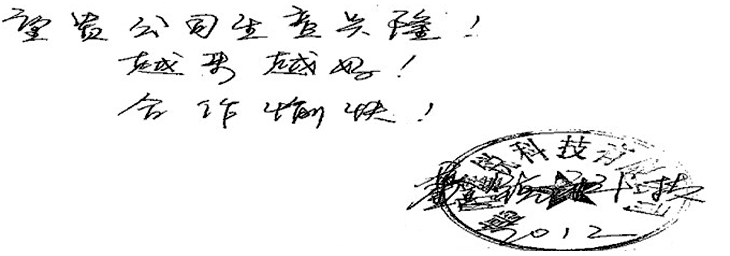 望贵公司生意兴隆！
越来越好！
合作愉快！
科技有
2012